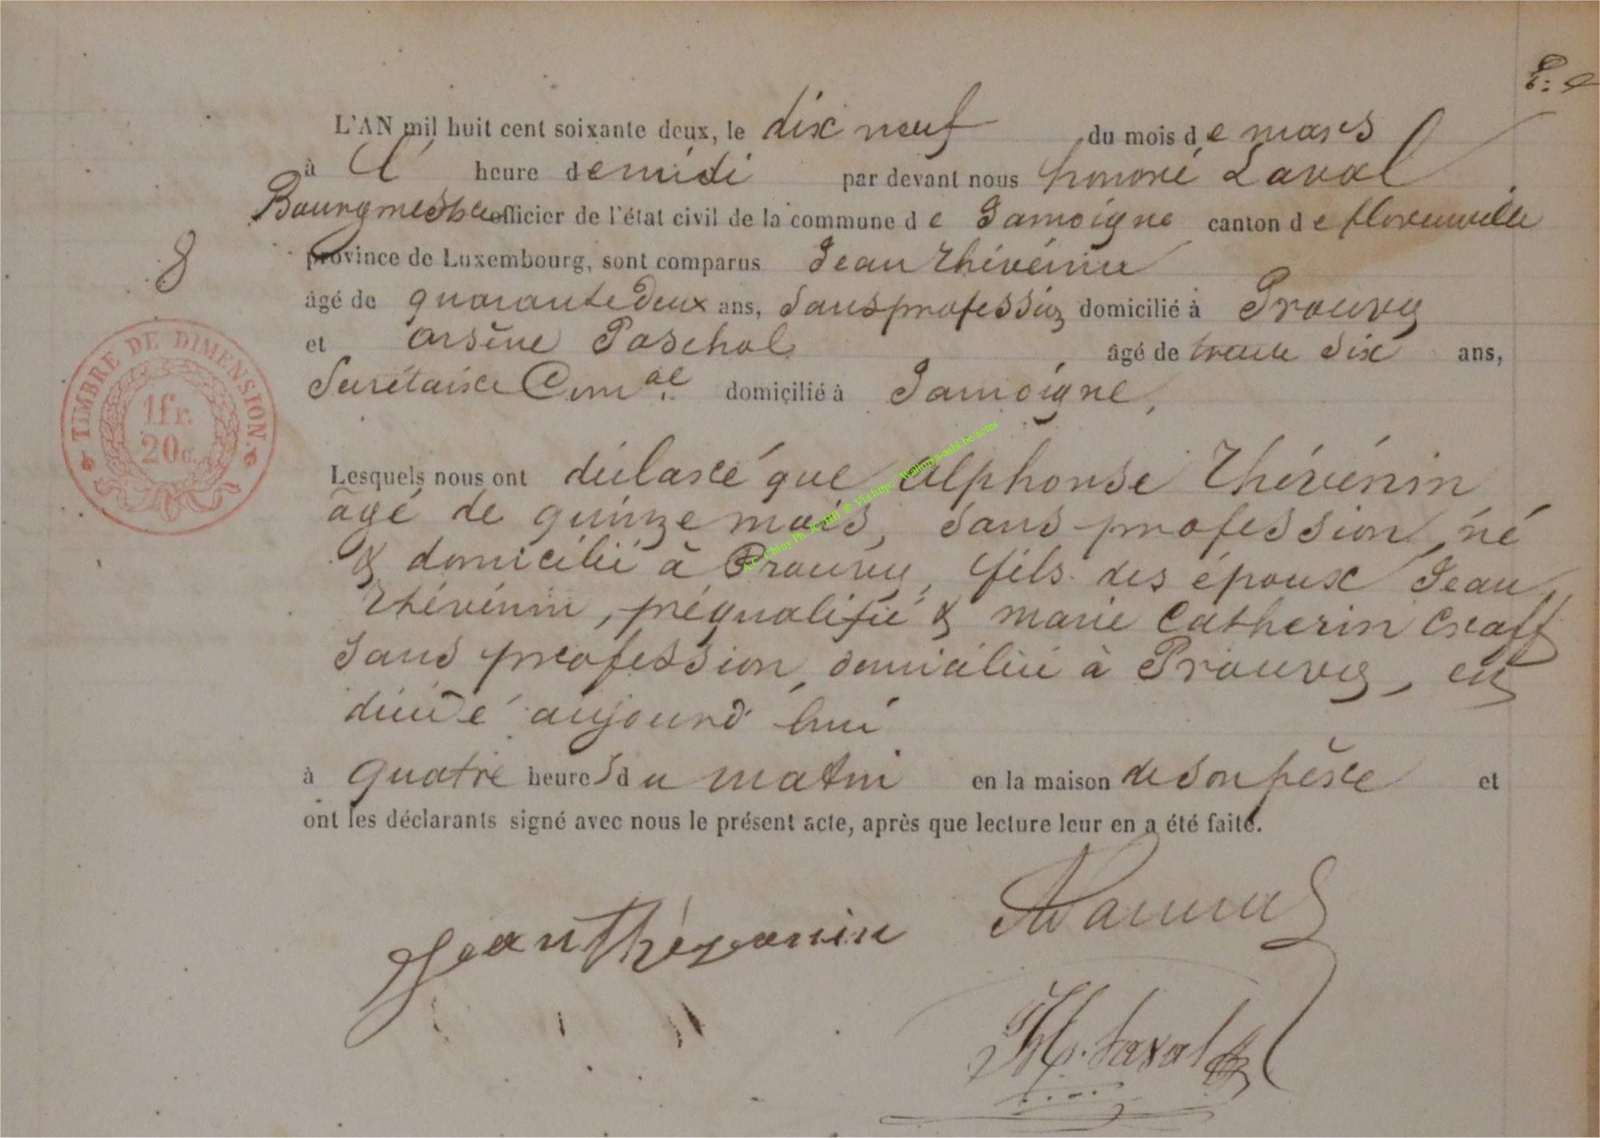 L'AN mil huit cent soixante deux, le dix neuf du mois de mars
à L' heure de midi par devant nous honoré Laval
Bourgmestre officier de l'état civil de la commune de Jamoigne canton de florenville
province de Luxembourg, sont comparus Jean thévénin
âgé de quarante deux ans, Sans profession domicilié à Prouvy
et arsène Paschal âgé de trente Six ans,
Secrétaire Com.al domicilié à Jamoigne,
8
TIMBRE DE DIMENSION.
1fr.
20c.
Lesquels nous ont déclaré que Alphonse thévénin
agé de quinze mois, sans profession, né
& domicilié à Prouvy, fils des époux Jean
thévénin, préqualifié & marie Catherin Craff
sans profession, domicilié à Prouvy, est
décédé aujourd'hui
à quatre heures du matin en la maison de son père et
ont les déclarants signé avec nous le présent acte, après que lecture leur en a été faite.
Jean Thévenin
H. Laval